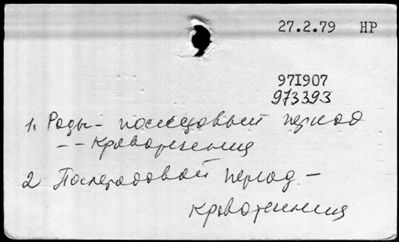 27.2.79 НР
971907
973393
1. Роды – последовый период
– – Кровотечения
2 Послеродовой период –
Кровотечения